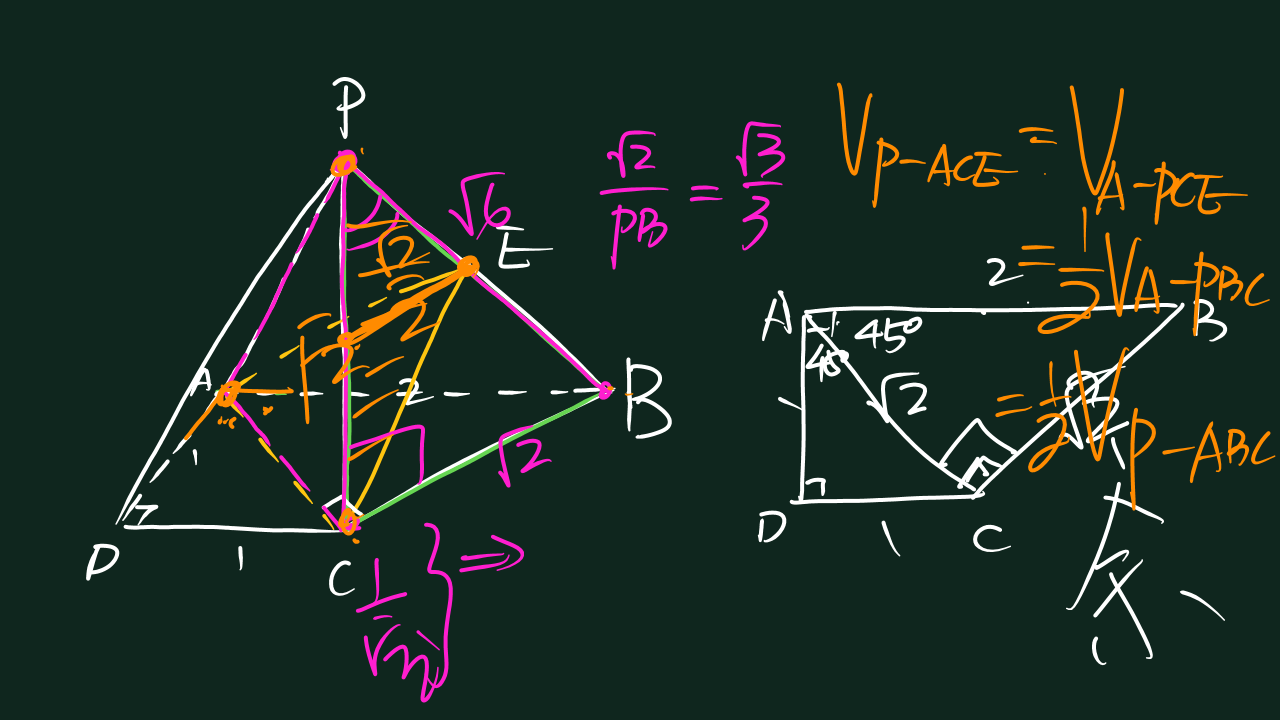 P
√6
E
√2
A
2
B
1
√2/2
√2
D
1
C
√2/PB = √3/3
V P-ACE = V A-PCE
= 1/2 V A-PBC
= 1/2 V P-ABC
A
2
B
45°
45°
√2
√2
1
D
1
C